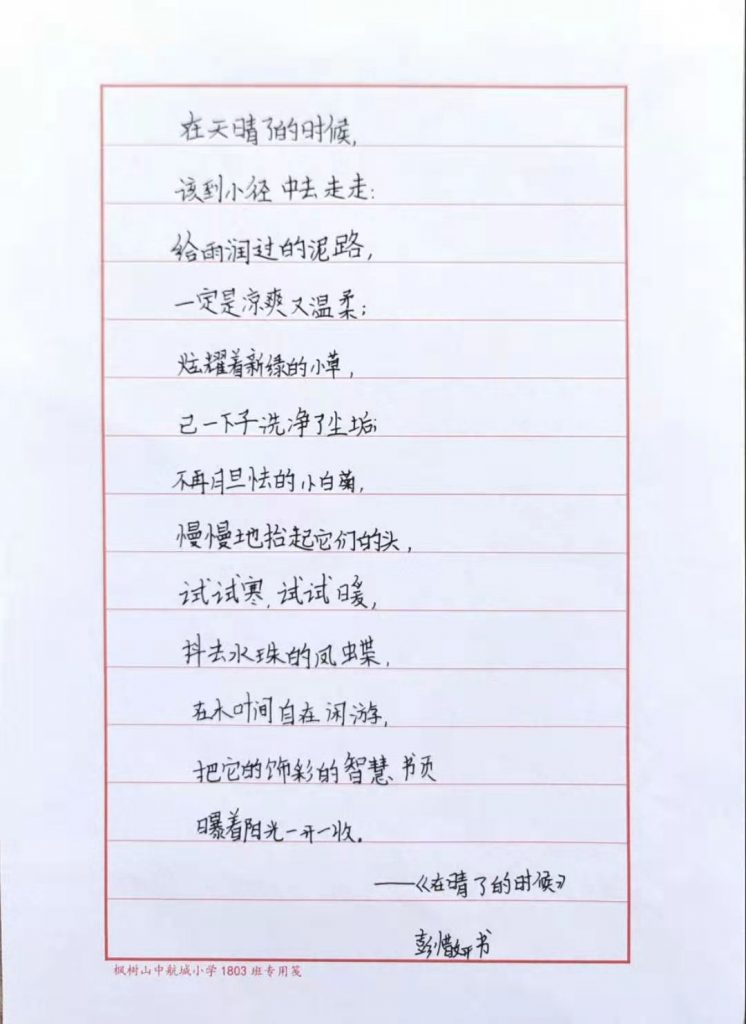 在天晴了的时候，
该到小径中去走走：
给雨润过的泥路，
一定是凉爽又温柔；
炫耀着新绿的小草，
已一下子洗净了尘垢；
不再胆怯的小白菊，
慢慢地抬起它们的头，
试试寒，试试暖，
抖去水珠的凤蝶，
在木叶间自在闲游，
把它的饰彩的智慧书页
曝着阳光一开一收。
——《在晴了的时候》
彭惜妍书
枫树山中航城小学1803班专用笺